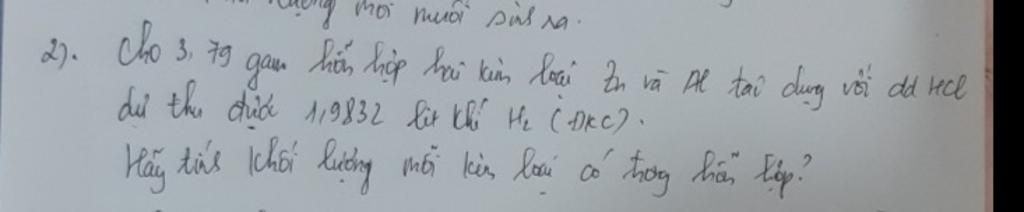 lượng mỗi muối sinh ra.
2). Cho 3,79 gam hỗn hợp hai kim loại Zn và Al tác dụng với dd HCl
dư thu được 1,9832 lít khí H₂ (ĐKC).
Hãy tính khối lượng mỗi kim loại có trong hỗn hợp?